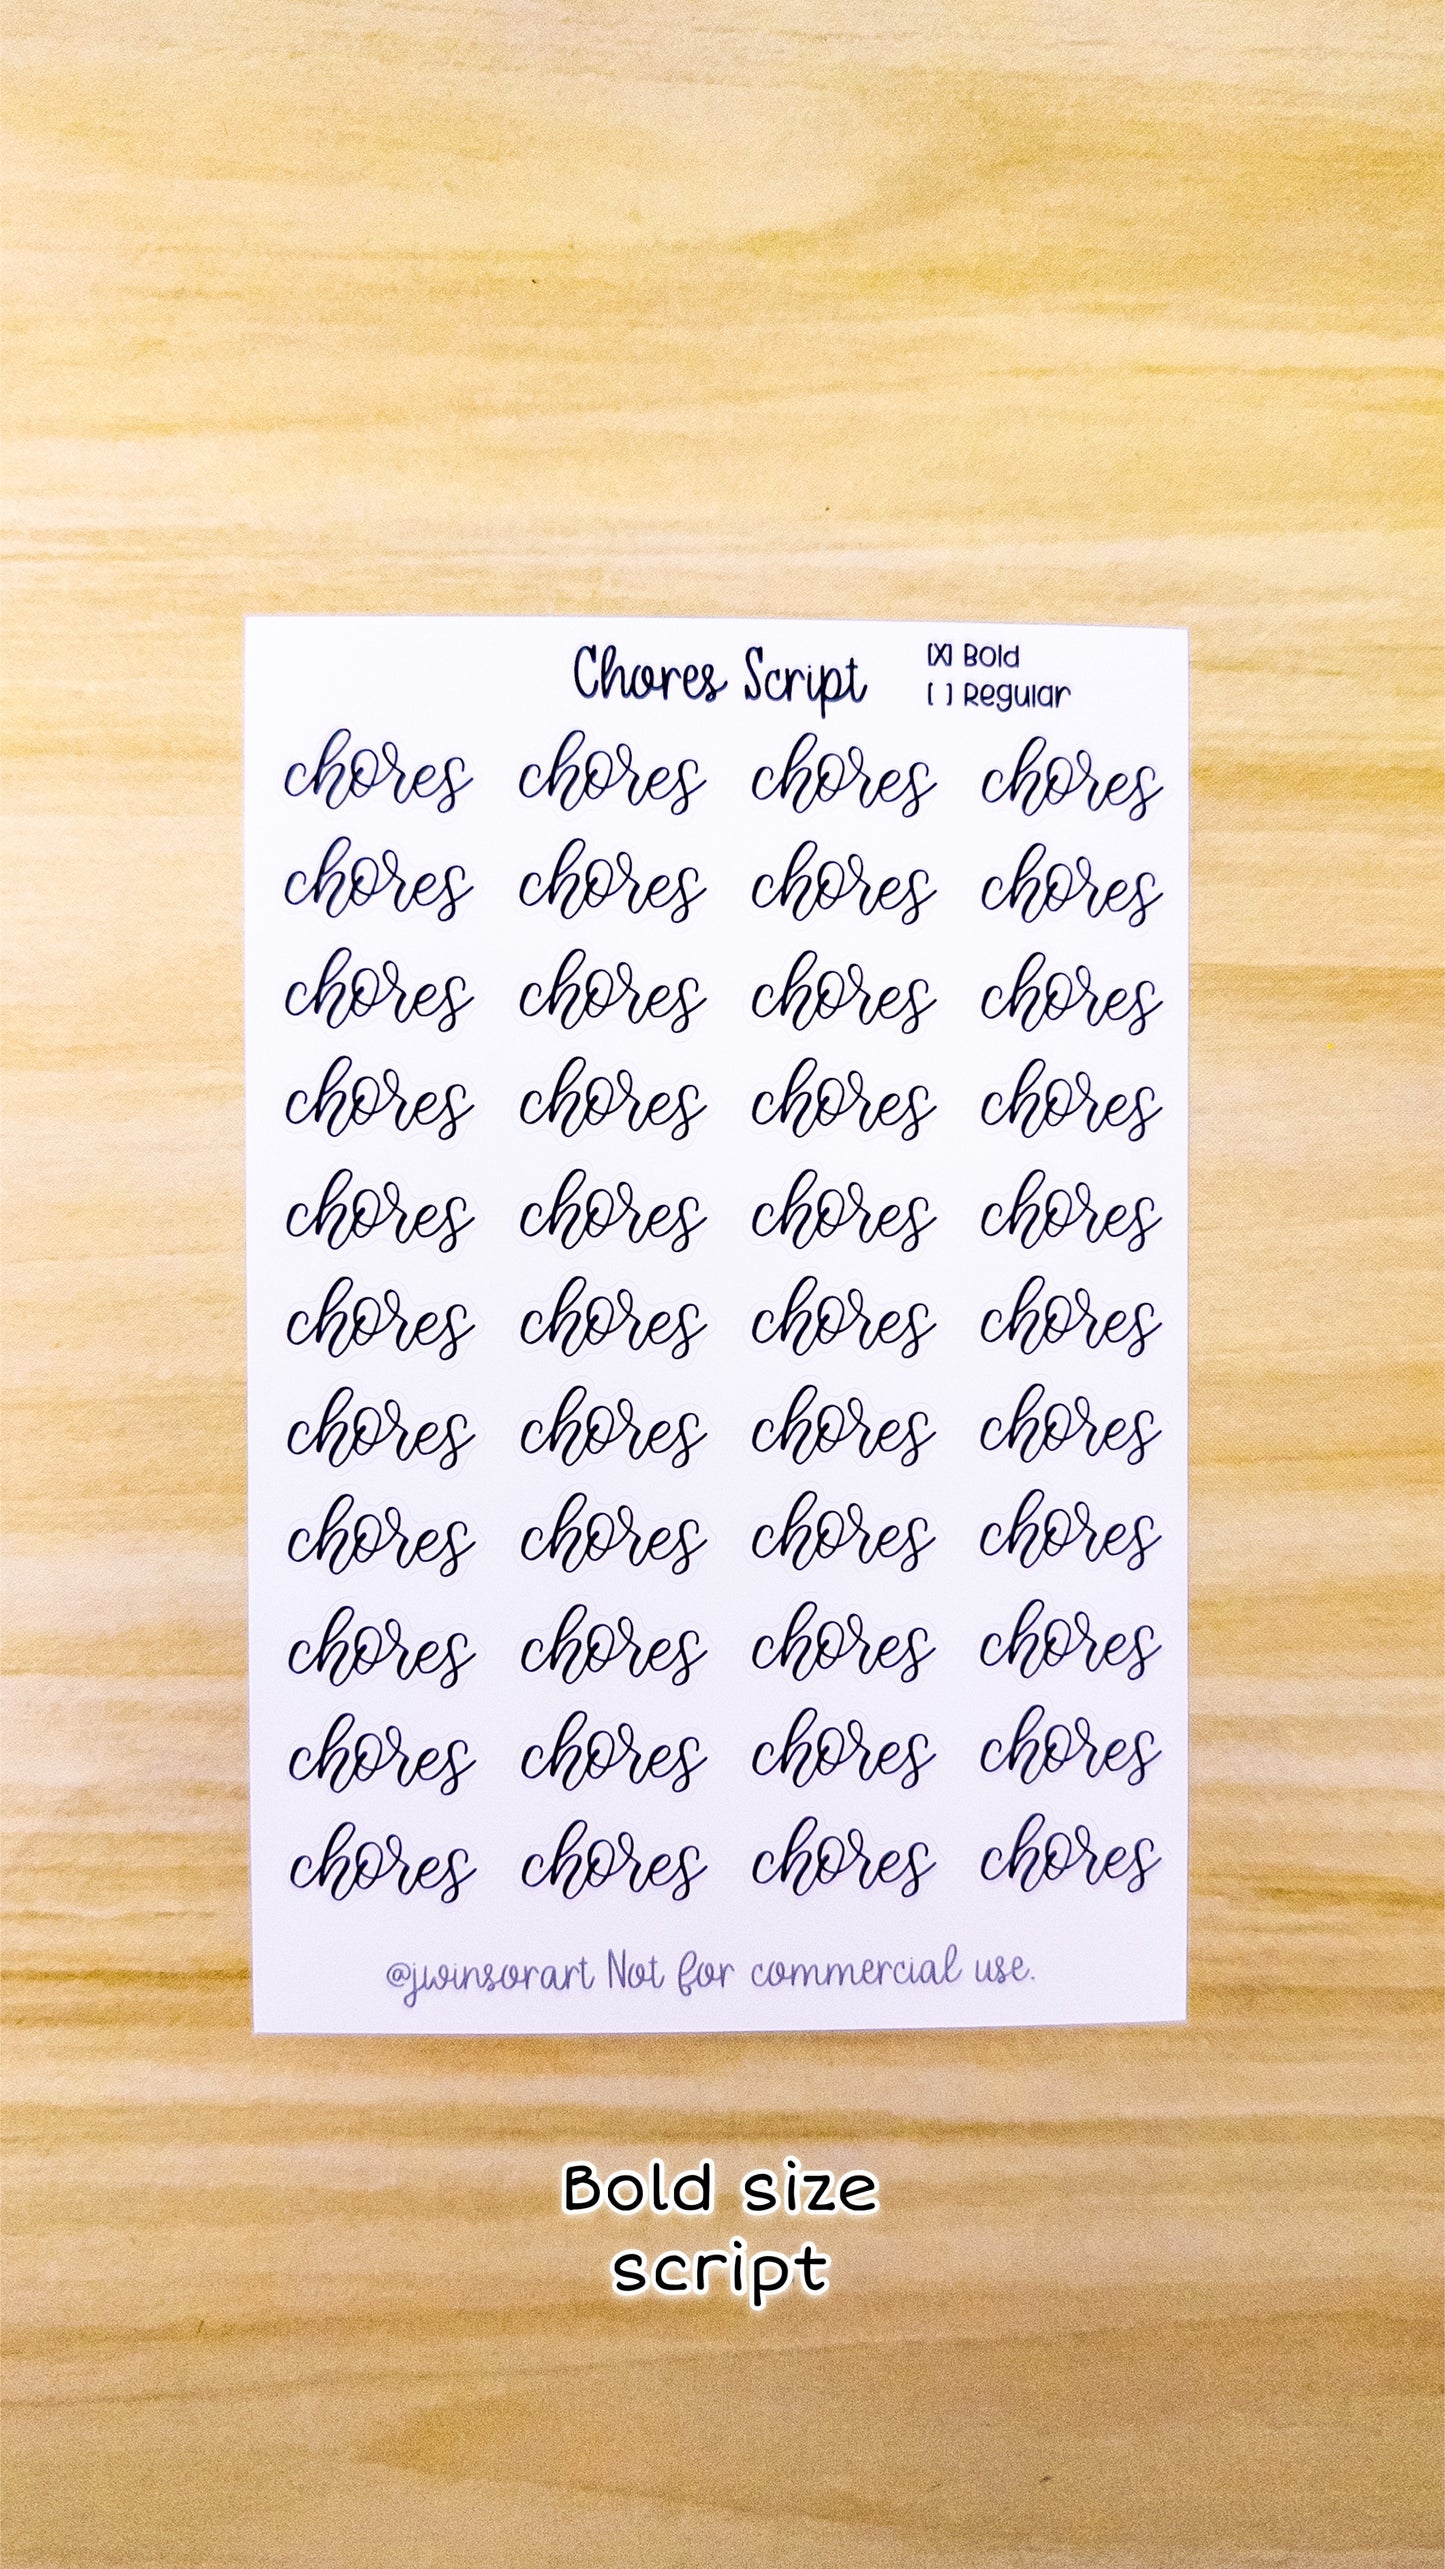 Chores Script
[X] Bold
[ ] Regular
chores chores chores chores
chores chores chores chores
chores chores chores chores
chores chores chores chores
chores chores chores chores
chores chores chores chores
chores chores chores chores
chores chores chores chores
chores chores chores chores
chores chores chores chores
chores chores chores chores
@jwinsorart Not for commercial use.
Bold size
script